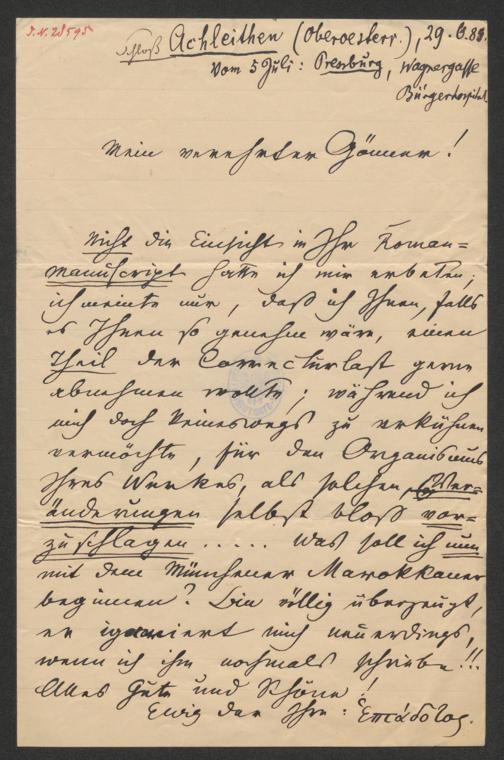 J.N. 28595
Schloß Achleithen (Oberoesterr.), 29. 6. 88.
Vom 5 Juli: Pressburg, Wagnergasse
Bürgerhospital
Mein verehrter Gönner!
Nicht die Einsicht in Ihr Roman=
manuscript hatte ich mir erbeten;
ich meinte nur, daß ich Ihnen, falls
es Ihnen so genehm wäre, einen
Theil der Correcturlast gerne
abnehmen wollte; während ich
mich doch keineswegs zu erkühnen
vermöchte, für den Organismus
Ihres Werkes, als solchen, Ver-
änderungen selbst bloß vor=
zuschlagen ..... Was soll ich nun
mit dem Münchener Marokkaner
beginnen? Bin völlig überzeugt,
er ignoriert mich neuerdings,
wenn ich ihm nochmals schriebe!!!
Alles Gute und Schöne!
Ewig der Ihre: Ἑπτάδοτος.